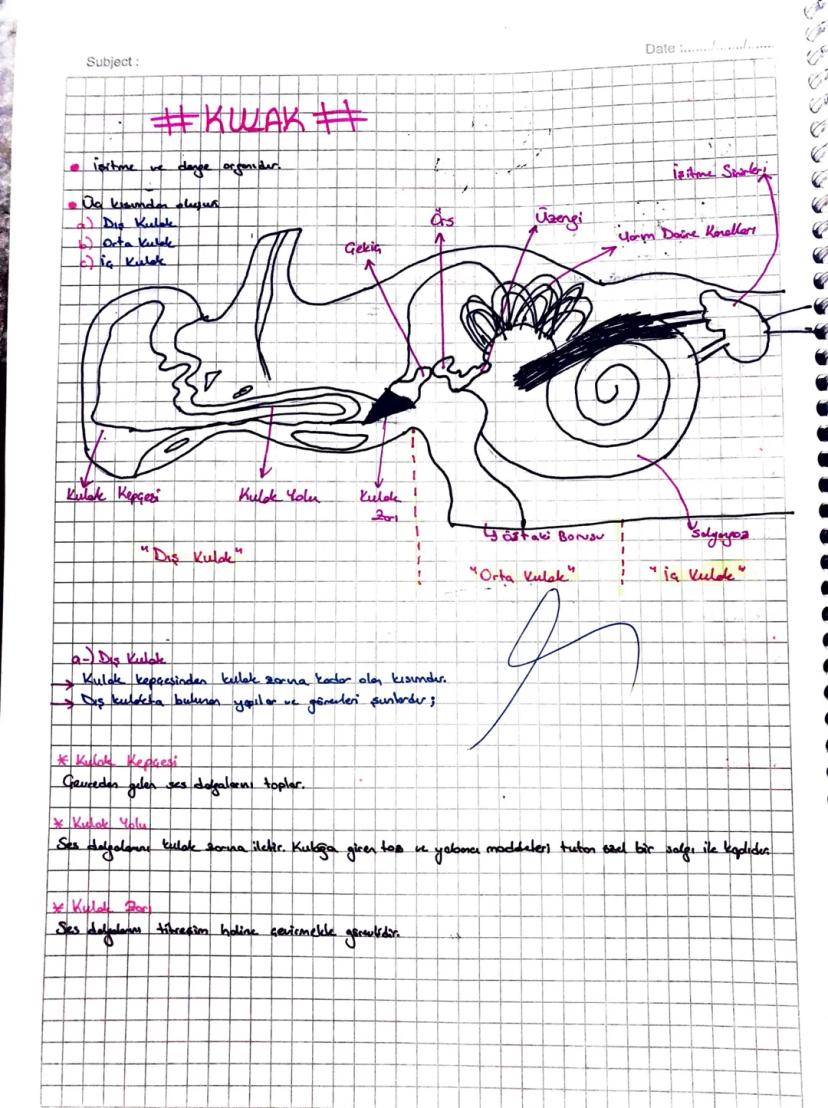 Subject :
Date :......./......./.......
# KULAK #
• İşitme ve denge organıdır.
• Üç kısımdan oluşur
a) Dış Kulak
b) Orta Kulak
c) İç Kulak
İşitme Sinirleri
Örs
Üzengi
Yarım Daire Kanalları
Çekiç
Kulak Kepçesi
Kulak Yolu
Kulak
Zarı
Östaki Borusu
Salyangoz
"Dış Kulak"
"Orta Kulak"
"İç Kulak"
a-) Dış Kulak
→ Kulak kepçesinden kulak zarına kadar olan kısımdır.
→ Dış kulakta bulunan yapılar ve görevleri şunlardır;
* Kulak Kepçesi
Çevreden gelen ses dalgalarını toplar.
* Kulak Yolu
Ses dalgalarını kulak zarına iletir. Kulağa giren toz ve yabancı maddeleri tutan özel bir salgı ile kaplıdır.
* Kulak Zarı
Ses dalgalarını titreşim haline çevirmekle görevlidir.